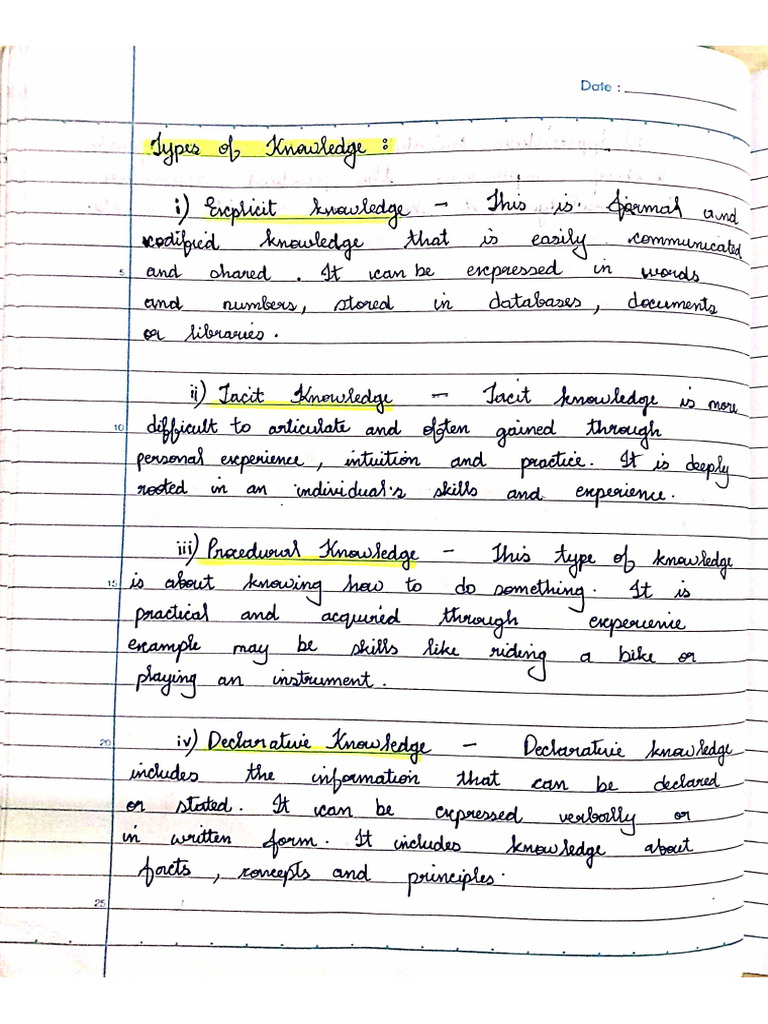 Date :
Types of Knowledge :
i) Explicit knowledge - This is formal and
codified knowledge that is easily communicated
5 and shared . It can be expressed in words
and numbers, stored in databases, documents
or libraries .
ii) Tacit Knowledge - Tacit knowledge is more
10 difficult to articulate and often gained through
personal experience, intuition and practice. It is deeply
rooted in an individual's skills and experience.
iii) Procedural Knowledge - This type of knowledge
15 is about knowing how to do something. It is
practical and acquired through experience
example may be skills like riding a bike or
playing an instrument.
20 iv) Declarative Knowledge - Declarative knowledge
includes the information that can be declared
or stated. It can be expressed verbally or
in written form. It includes knowledge about
facts, concepts and principles.
25